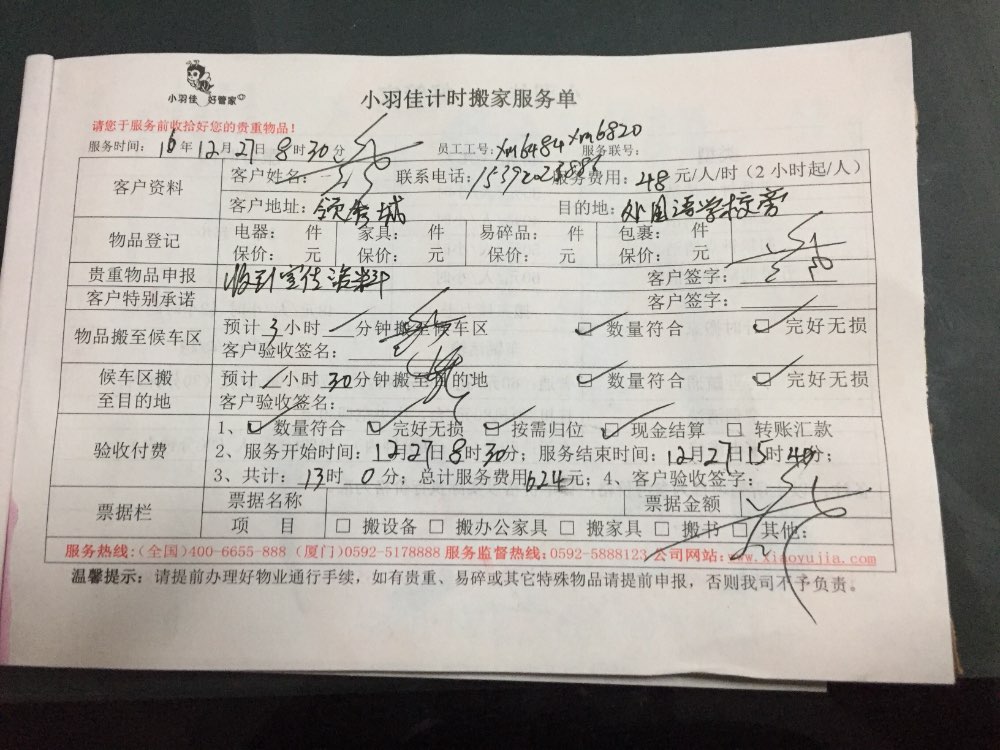 小羽佳 好管家
小羽佳计时搬家服务单
请您于服务前收拾好您的贵重物品！
服务时间：16年12月27日8时30分 员工工号：xm6484 xm6820 服务联号：
客户资料
客户姓名： 联系电话： 服务费用：48元/人/时（2小时起/人）
客户地址：领秀城 目的地：外国语学校旁
物品登记
电器： 件 家具： 件 易碎品： 件 包裹： 件
保价： 元 保价： 元 保价： 元 保价： 元
贵重物品申报 收到宣传资料 客户签字：
客户特别承诺 客户签字：
物品搬至候车区
预计3小时 分钟搬至候车区 数量符合 完好无损
客户验收签名：
候车区搬至目的地
预计 小时30分钟搬至目的地 数量符合 完好无损
客户验收签名：
验收付费
1、 数量符合 完好无损 按需归位 现金结算 转账汇款
2、服务开始时间：12月27日8时30分；服务结束时间：12月27日15时 分；
3、共计：13时0分；总计服务费用624元；4、客户验收签字：
票据栏
票据名称 票据金额
项 目 搬设备 搬办公家具 搬家具 搬书 其他：
服务热线：（全国）400-6655-888（厦门）0592-5178888 服务监督热线：0592-5888123 公司网站：www.xiaoyujia.com
温馨提示：请提前办理好物业通行手续，如有贵重、易碎或其它特殊物品请提前申报，否则我司不予负责。